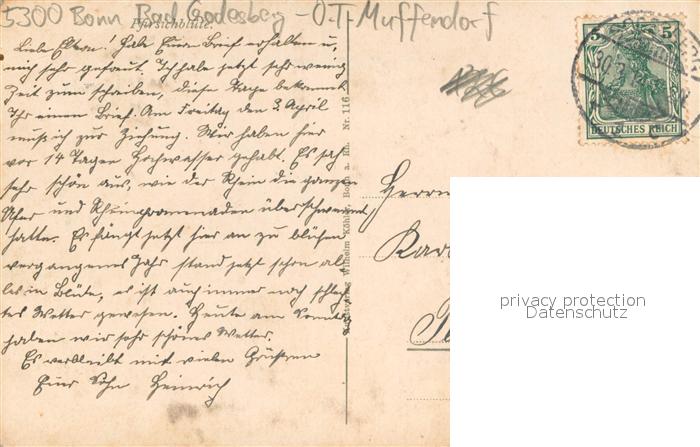 5300 Bonn Bad Godesberg - O.T. Muffendorf
Pfirsichblüte.
Liebe Eltern! Habe Euren Brief erhalten u.
mich sehr gefreut. Ich habe jetzt sehr wenig
Zeit zum schreiben, diese Tage bekommt
Ihr einen Brief. Am Freitag den 3. April
muß ich zur Ziehung. Wir haben hier
vor 14 Tagen Hochwasser gehabt. Es sah
sehr schön aus, wie der Rhein die ganzen
Ufer und Rheinpromenaden überschwemmt
hatte. Es fängt jetzt hier an zu blühen
vergangenes Jahr stand jetzt schon al
les in Blüte, es ist auch immer noch schlech
tes Wetter gewesen. Heute am Sonntag
haben wir sehr schönes Wetter.
Es verbleibt mit vielen Grüßen
Euer Sohn Heinrich
Kunstverlag Wilhelm Köhler, Bonn a. Rh. Nr. 116
5 5
DEUTSCHES REICH
Herrn
privacy protection
Datenschutz